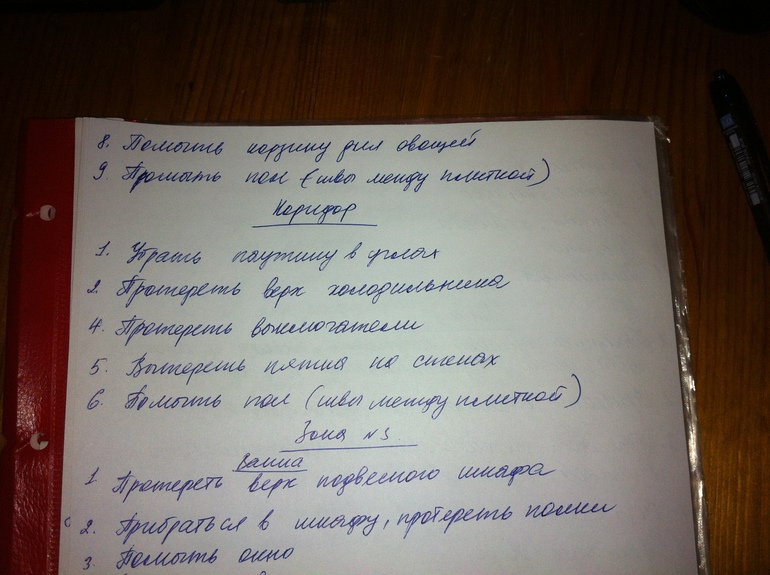 8. Помыть корзину для овощей
9. Промыть пол (швы между плиткой)
Коридор
1. Убрать паутину в углах
2. Протереть верх холодильника
4. Протереть выключатели
5. Вытереть пятна на стенах
6. Помыть пол (швы между плиткой)
Зона №3
Ванна
1 Протереть верх подвесного шкафа
2. Прибраться в шкафу, протереть полки
3. Помыть окно